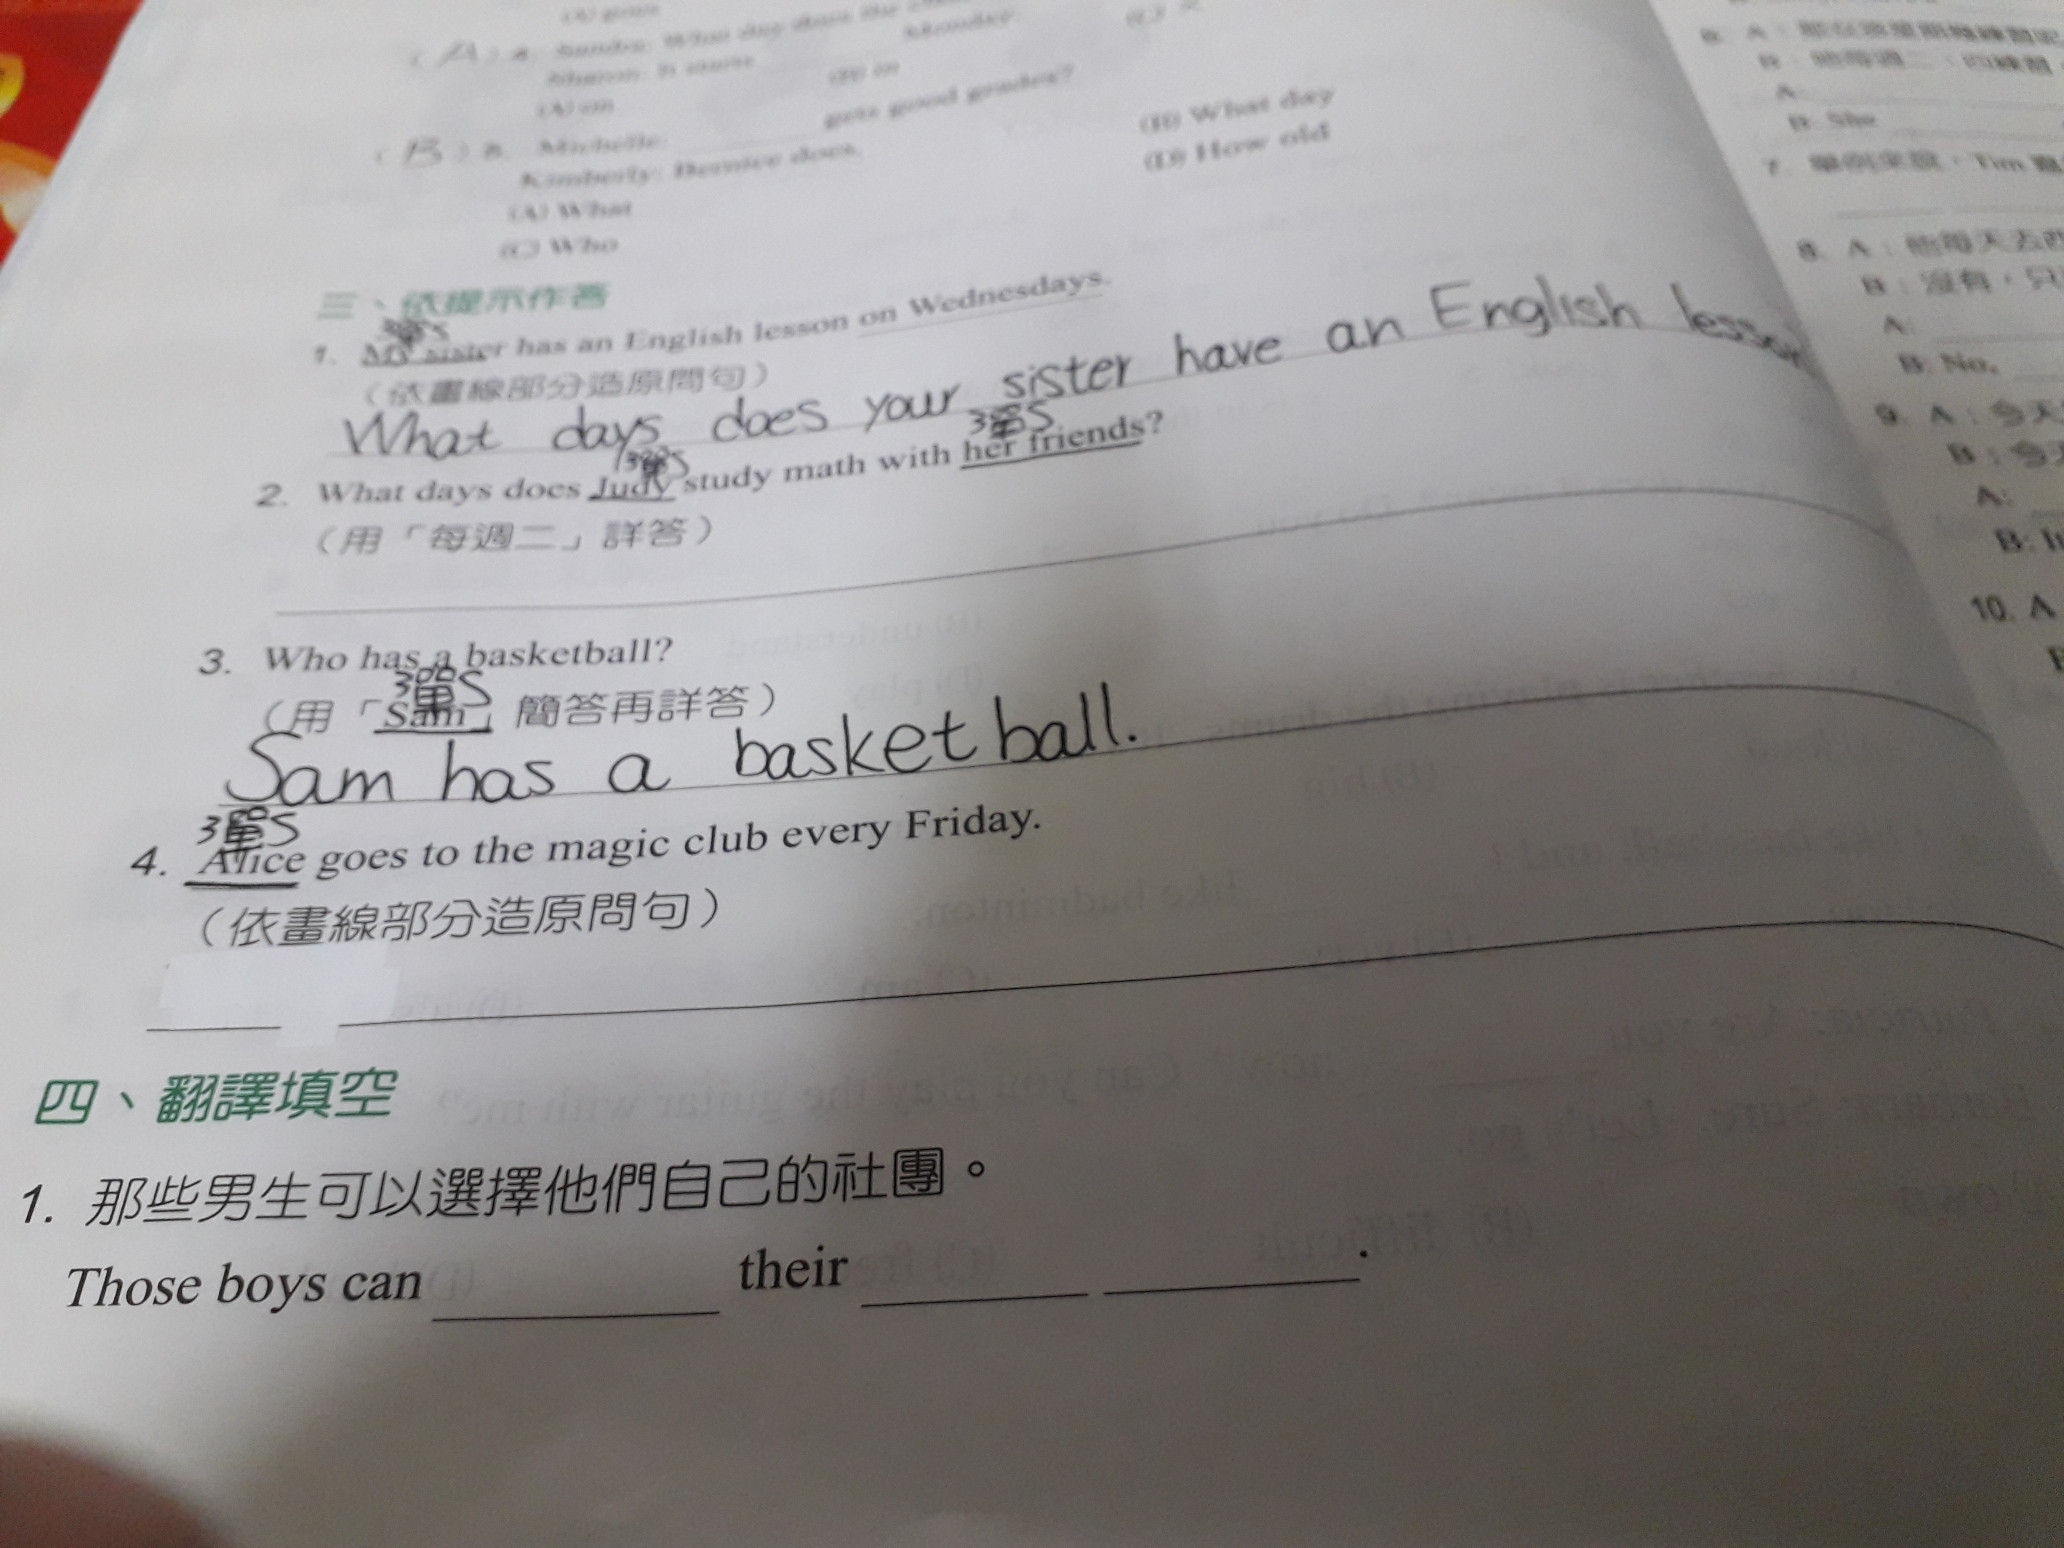 (A) 4. Sandra: What day does the
Monday.
(A) on
(B) in
(B) 5. Michelle: ______ gets good grades?
Kimberly: Bernice does.
(A) What
(B) What day
(C) Who
(D) How old
三、依提示作答
3單S
1. My sister has an English lesson on Wednesdays.
(依畫線部分造原問句)
What days does your sister have an English lesson
3單S 3單S
2. What days does Judy study math with her friends?
(用「每週二」詳答)
3. Who has a basketball?
3單S
(用「Sam」簡答再詳答)
Sam has a basketball.
3單S
4. Alice goes to the magic club every Friday.
(依畫線部分造原問句)
四、翻譯填空
1. 那些男生可以選擇他們自己的社團。
Those boys can ______ their ______ ______.
A:
B: She
7. 舉例來說,Tim
8. A:他每天去
B:沒有,只
A:
B: No,
9. A:今天
B:今
A:
B: I
10. A